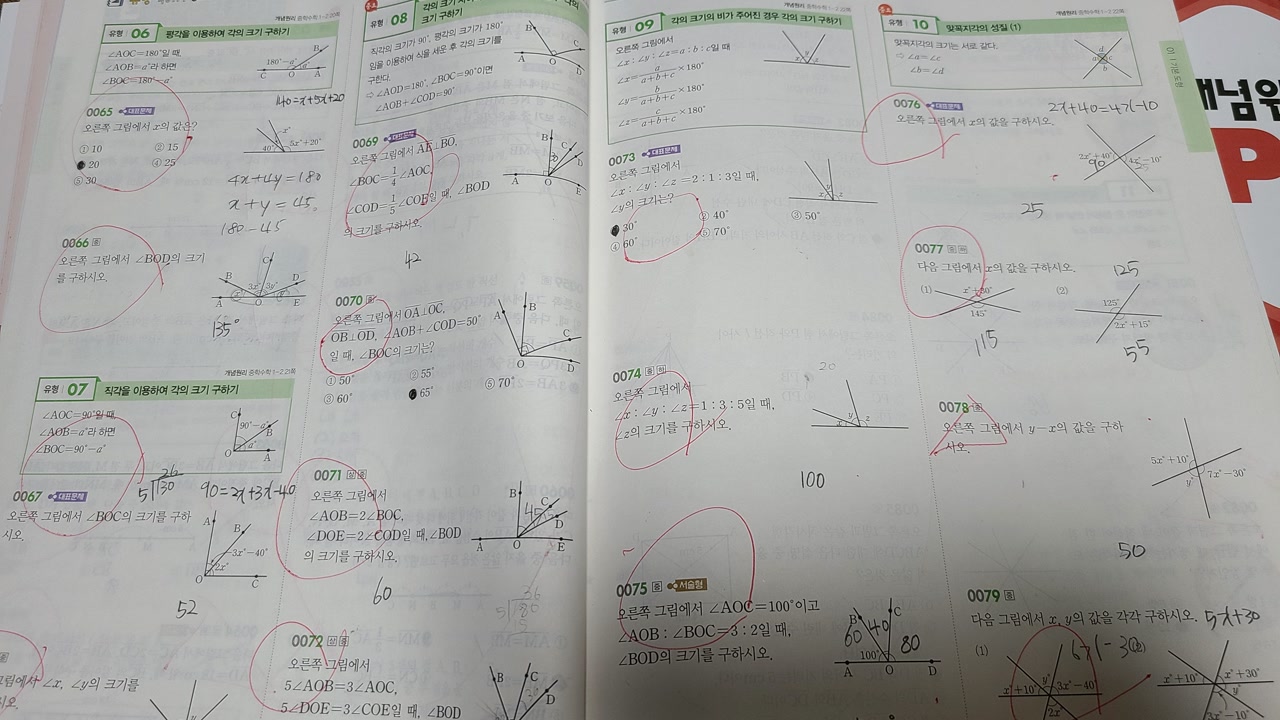 유형 06 평각을 이용하여 각의 크기 구하기
∠AOC=180°일 때,
∠AOB=a°라 하면
∠BOC=180°-a°
180°-a°
B
C O A
140=x+5x+20
0065 대표문제
오른쪽 그림에서 x의 값은?
① 10 ② 15
20 ④ 25
⑤ 30
x°
40° 5x°+20°
4x+4y=180
x+y=45
180-45
0066 중
오른쪽 그림에서 ∠BOD의 크기
를 구하시오.
C
B 3x° 3y° D
A O E
135°
개념원리 중학수학 1-2 21쪽
유형 07 직각을 이용하여 각의 크기 구하기
∠AOC=90°일 때,
∠AOB=a°라 하면
∠BOC=90°-a°
C
90°-a°
B
O A
26
5)130
90=2x+3x-40
0067 대표문제
오른쪽 그림에서 ∠BOC의 크기를 구하
시오.
A
B
3x°-40°
2x°
O C
52
그림에서 ∠x, ∠y의 크기를
유형 08
크기 구하기
직각의 크기가 90°, 평각의 크기가 180°
임을 이용하여 식을 세운 후 각의 크기를
구한다.
⇨ ∠AOD=180°, ∠BOC=90°이면
∠AOB+∠COD=90°
0069 대표문제
오른쪽 그림에서 AE⊥BO,
∠BOC=1/4∠AOC,
∠COD=1/5∠COE일 때, ∠BOD
의 크기를 구하시오.
42
0070 중
오른쪽 그림에서 OA⊥OC,
OB⊥OD, ∠AOB+∠COD=50°
일 때, ∠BOC의 크기는?
① 50° ② 55°
③ 60° 65° ⑤ 70°
A B C
O D
0071
오른쪽 그림에서
∠AOB=2∠BOC,
∠DOE=2∠COD일 때, ∠BOD
의 크기를 구하시오.
B C
45
D
A O E
60
36
5)180
0072
오른쪽 그림에서
5∠AOB=3∠AOC,
5∠DOE=3∠COE일 때, ∠BOD
B C
D
유형 09 각의 크기의 비가 주어진 경우 각의 크기 구하기
오른쪽 그림에서
∠x : ∠y : ∠z=a : b : c일 때
∠x=a/(a+b+c)×180°
∠y=b/(a+b+c)×180°
∠z=c/(a+b+c)×180°
0073 대표문제
오른쪽 그림에서
∠x : ∠y : ∠z=2 : 1 : 3일 때,
∠y의 크기는?
30° ② 40° ③ 50°
④ 60° ⑤ 70°
x y z
20
0074
오른쪽 그림에서
∠x : ∠y : ∠z=1 : 3 : 5일 때,
∠z의 크기를 구하시오.
y
x z
100
0075 중 서술형
오른쪽 그림에서 ∠AOC=100°이고
∠AOB : ∠BOC=3 : 2일 때,
∠BOD의 크기를 구하시오.
B C
60 40 80
100°
A O D
개념원리 중학수학 1-2 22쪽
유형 10 맞꼭지각의 성질 (1)
맞꼭지각의 크기는 서로 같다.
⇨ ∠a=∠c
∠b=∠d
d
a c
b
01 기본 도형
0076 대표문제
오른쪽 그림에서 x의 값을 구하시오.
2x+40=4x-10
2x°+40° 4x°-10°
90
25
0077
다음 그림에서 x의 값을 구하시오.
(1) x°+30°
145°
115
(2)
125
125°
2x°+15°
55
0078 중
오른쪽 그림에서 y-x의 값을 구하
시오.
5x°+10°
7x°-30°
y°
50
0079 중
다음 그림에서 x, y의 값을 각각 구하시오.
5x+30
(1)
x°+10° y° 3x°-40°
2x°
6x-30
x°+10° x°+30°
y°
3x°-10°
개념원